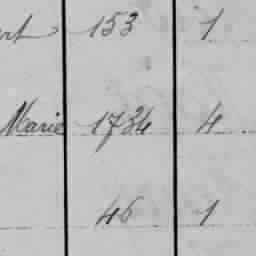 153 1
Marie 1734 4
46 1